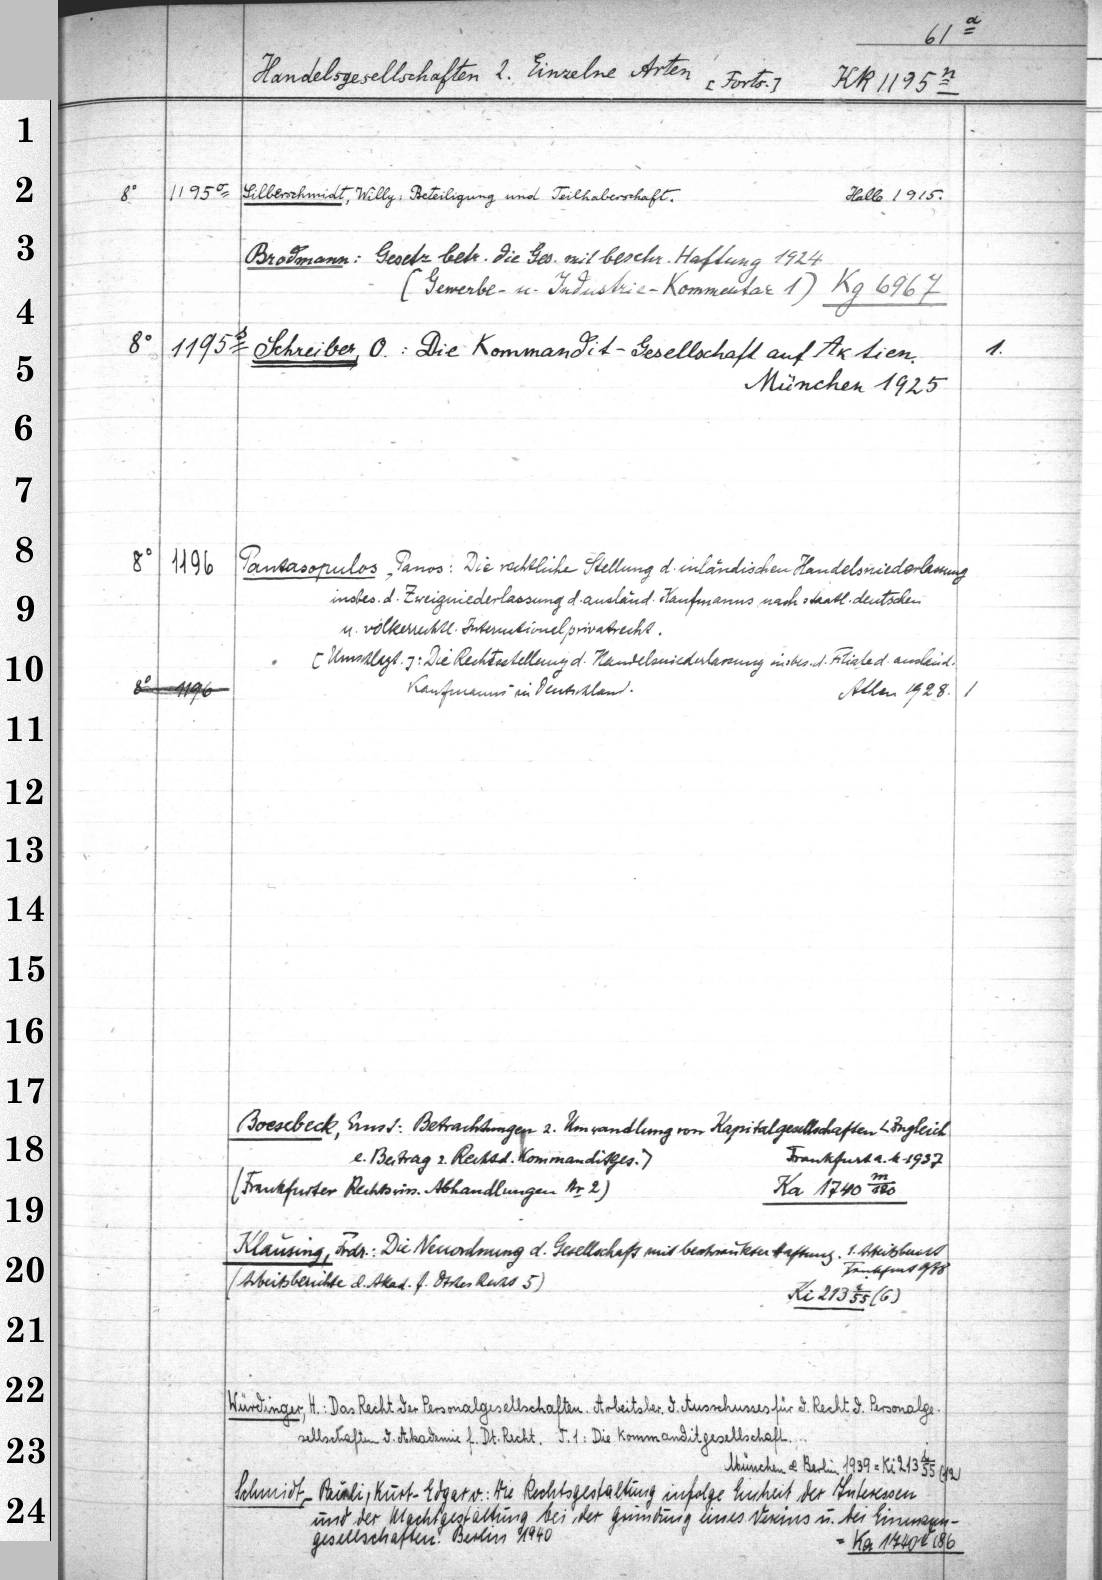 61 a
Handelsgesellschaften 2. Einzelne Arten [Forts.] KR 1195 n
1
2
8° 1195 o Silberschmidt, Willy: Beteiligung und Teilhaberschaft. Halle 1915.
3
Brodmann: Gesetz betr. die Ges. mit beschr. Haftung 1924
(Gewerbe- u. Industrie-Kommentar 1) Kg 6967
4
8° 1195 s Schreiber, O.: Die Kommandit-Gesellschaft auf Aktien. 1.
5
München 1925
6
7
8
8° 1196 Pantasopulos, Panos: Die rechtliche Stellung d. inländischen Handelsniederlassung
insbes. d. Zweigniederlassung d. ausländ. Kaufmanns nach staatl. deutschen
9
u. völkerrechtl. Internationalprivatrecht.
[Umschlagt.]: Die Rechtsstellung d. Handelsniederlassung insbes. d. Filiale d. ausländ.
10
8° 1196 Kaufmanns in Deutschland. Athen 1928. 1
11
12
13
14
15
16
17
Boesebeck, Ernst: Betrachtungen z. Umwandlung von Kapitalgesellschaften (Zugleich
18
e. Beitrag z. Recht d. Kommanditges.) Frankfurt a. M. 1937
(Frankfurter Rechtswiss. Abhandlungen Nr 2) Ka 1740 m/120
19
Klausing, Frdr.: Die Neuordnung d. Gesellschaft mit beschränkter Haftung. 1. Arbeitsbericht
20
(Arbeitsberichte d. Akad. f. Dtsches Recht 5) Frankfurt
Ki 213 /55 (6)
21
22
Würdinger, H.: Das Recht der Personalgesellschaften. Arbeitsber. d. Ausschusses für d. Recht d. Personalge-
sellschaften d. Akademie f. Dt. Recht. T. 1: Die Kommanditgesellschaft...
23
München & Berlin 1939 = Ki 213 /55 (12)
Schmidt, Kurt-Edgar v.: Die Rechtsgestaltung infolge Einheit der Interessen
24
und der Machtgestaltung bei der Gründung eines Vereins u. bei Einmann-
gesellschaften. Berlin 1940 = Ka 1740